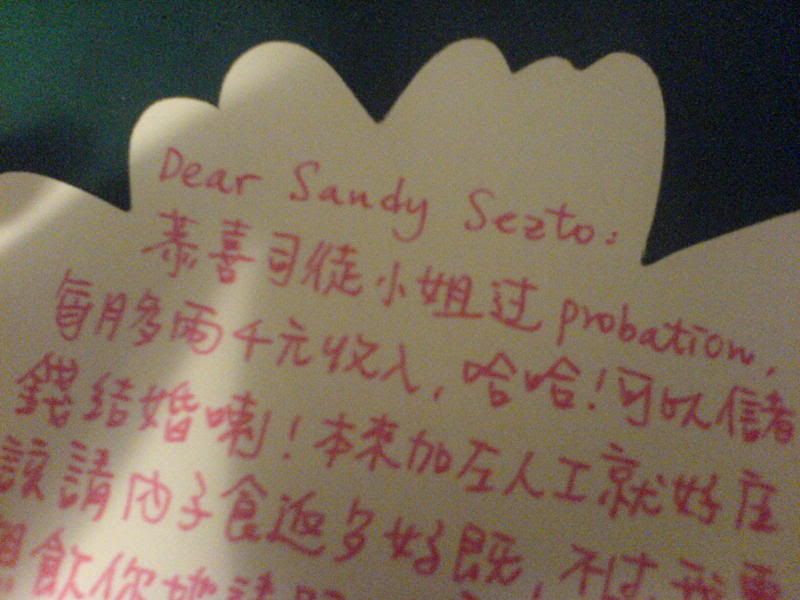 Dear Sandy Sezto:
恭喜司徒小姐过 probation,
每月多両千元收入,哈哈!可以儲
錢結婚喇!本來加左人工就好应
該請内子食返多好既,不过我要
飲你